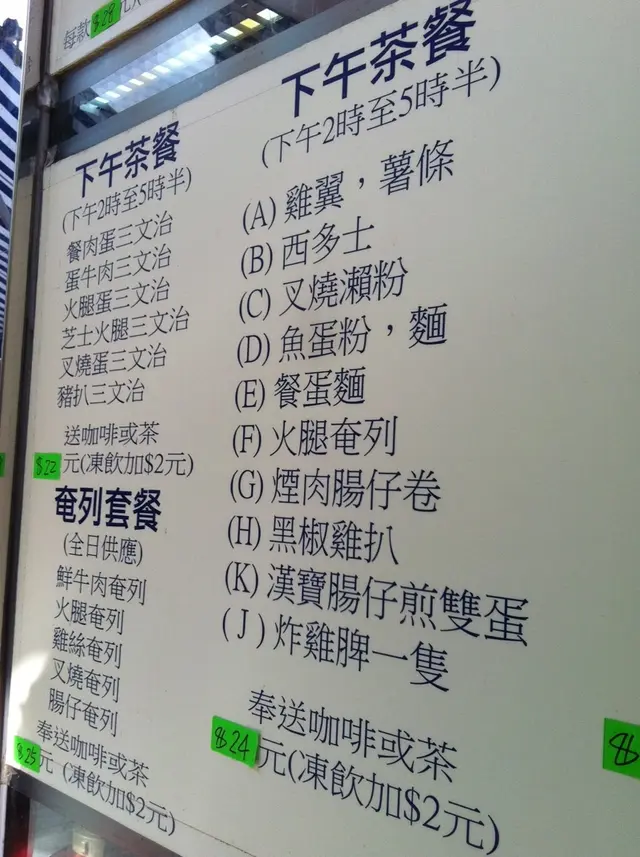 每款 $29 元
下午茶餐
(下午2時至5時半)
餐肉蛋三文治
蛋牛肉三文治
火腿蛋三文治
芝士火腿三文治
叉燒蛋三文治
豬扒三文治
送咖啡或茶
$22 元(凍飲加$2元)
奄列套餐
(全日供應)
鮮牛肉奄列
火腿奄列
雞絲奄列
叉燒奄列
腸仔奄列
奉送咖啡或茶
$25 元 (凍飲加$2元)
下午茶餐
(下午2時至5時半)
(A) 雞翼，薯條
(B) 西多士
(C) 叉燒瀨粉
(D) 魚蛋粉，麵
(E) 餐蛋麵
(F) 火腿奄列
(G) 煙肉腸仔卷
(H) 黑椒雞扒
(K) 漢寶腸仔煎雙蛋
(J) 炸雞脾一隻
奉送咖啡或茶
$24 元(凍飲加$2元)